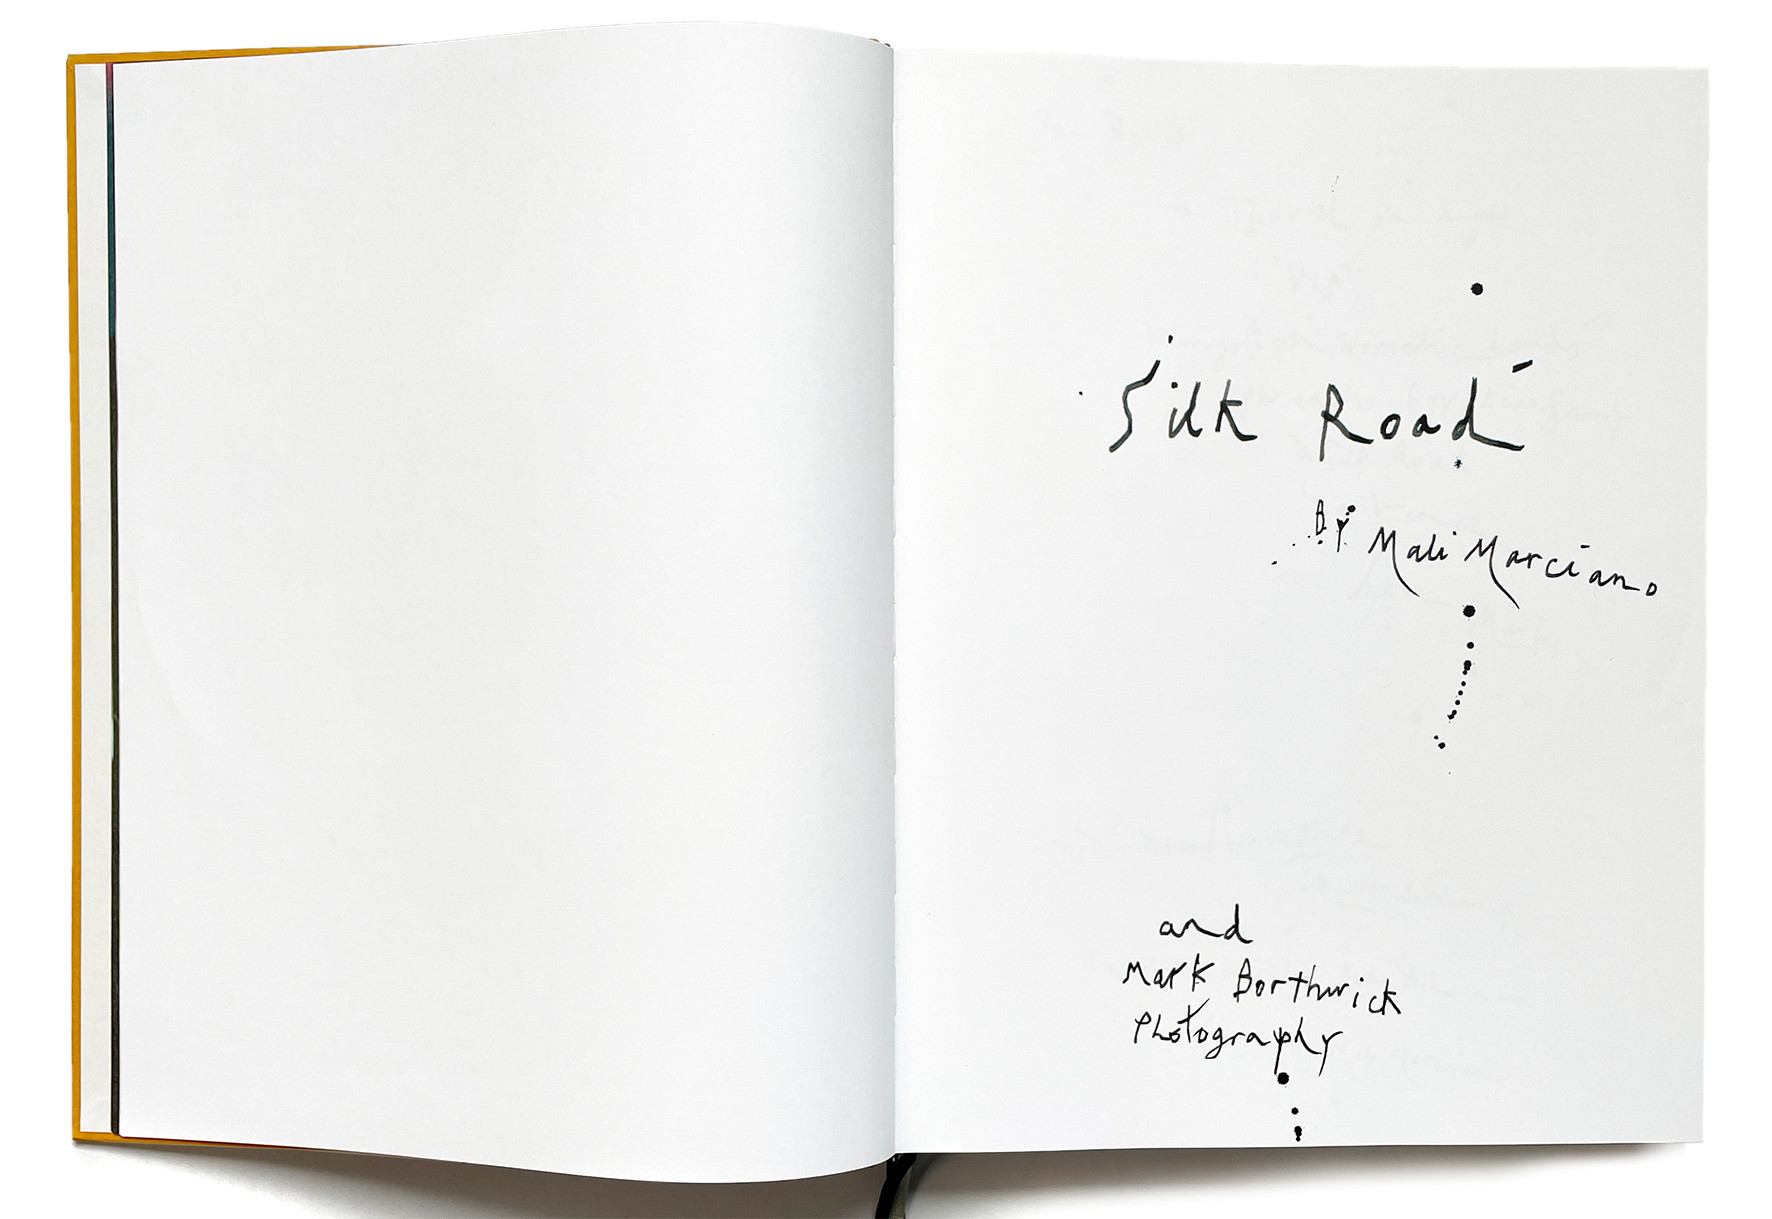 Silk Road
BY Mali Marciano
and
Mark Borthwick
Photography